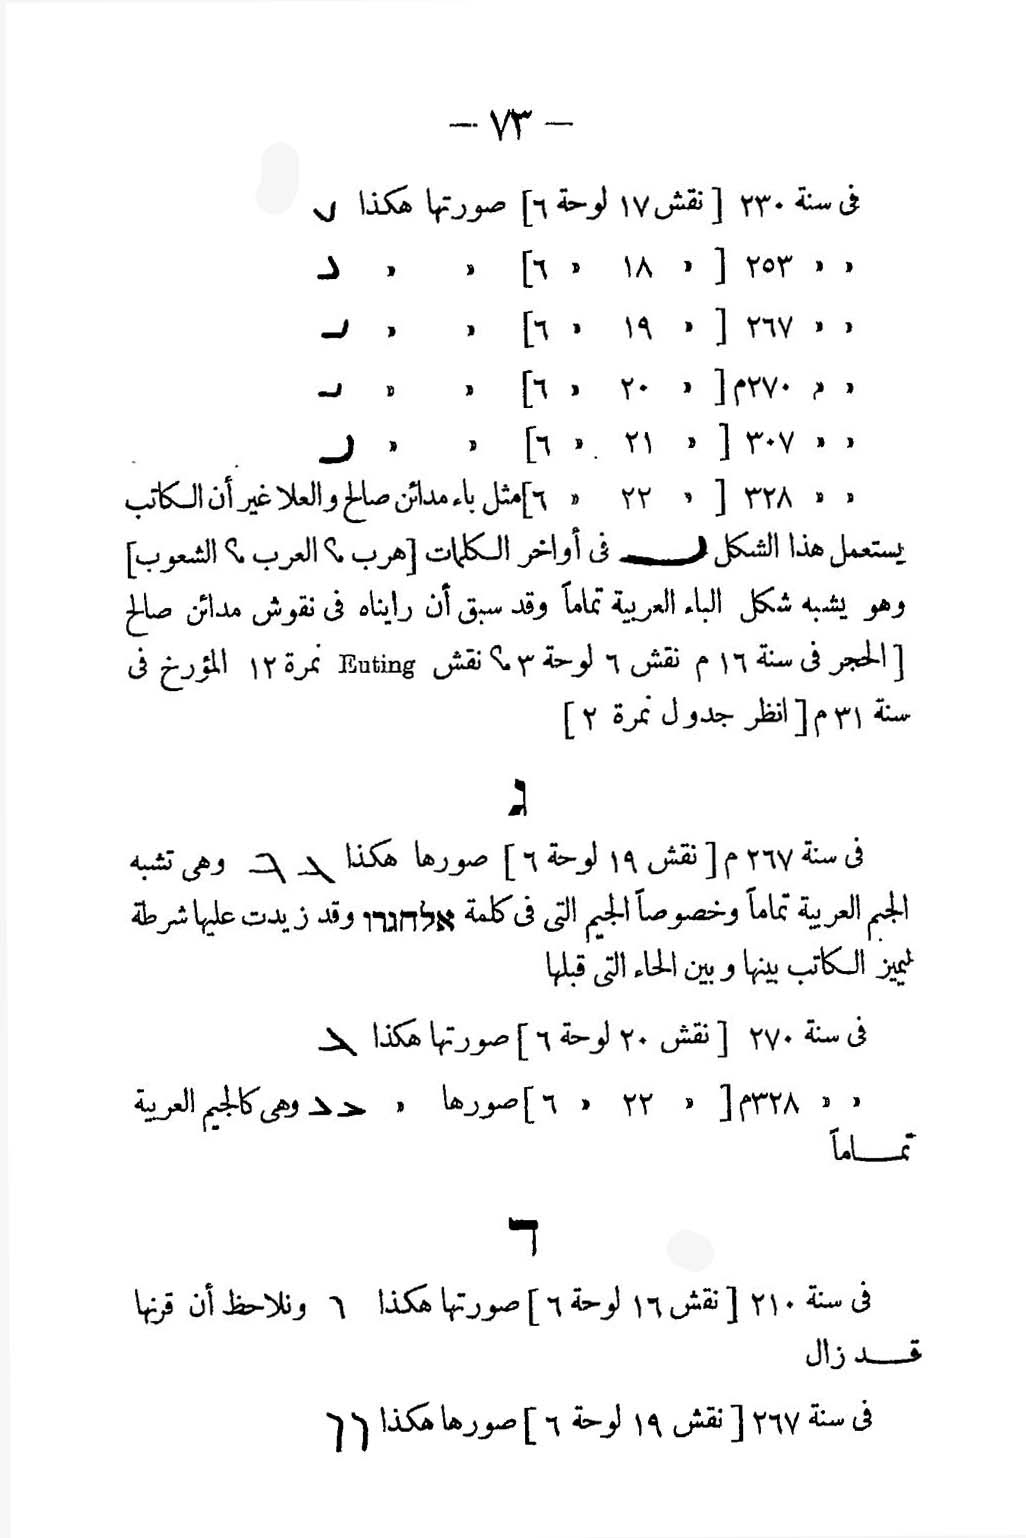 — ٧٣ —
فى سنة ٢٣٠ [ نقش ١٧ لوحة ٦] صورتها هكذا
» » ٢٥٣ [ » ١٨ » ٦] » »
» » ٢٦٧ [ » ١٩ » ٦] » »
» » ٢٧٠م [ » ٢٠ » ٦] » »
» » ٣٠٧ [ » ٢١ » ٦] » »
» » ٣٢٨ [ » ٢٢ » ٦] مثل باء مدائن صالح والعلا غير أن الكاتب
يستعمل هذا الشكل فى أواخر الكلمات [هرب ؟ العرب ؟ الشعوب]
وهو يشبه شكل الباء العربية تماماً وقد سبق أن رايناه فى نقوش مدائن صالح
[ الحجر فى سنة ١٦ م نقش ٦ لوحة ٣ ؟ نقش Euting نمرة ١٢ المؤرخ فى
سنة ٣١ م [ انظر جدول نمرة ٢ ]
ג
فى سنة ٢٦٧ م [ نقش ١٩ لوحة ٦ ] صورها هكذا وهى تشبه
الجيم العربية تماماً وخصوصاً الجيم التى فى كلمة אלחגרו وقد زيدت عليها شرطة
ليميز الكاتب بينها وبين الحاء التى قبلها
فى سنة ٢٧٠ [ نقش ٢٠ لوحة ٦ ] صورتها هكذا
» » ٣٢٨م [ » ٢٢ » ٦ ] صورها » وهى كالجيم العربية
تمــاماً
ד
فى سنة ٢١٠ [ نقش ١٦ لوحة ٦ ] صورتها هكذا ونلاحظ أن قرنها
قــد زال
فى سنة ٢٦٧ [ نقش ١٩ لوحة ٦ ] صورها هكذا